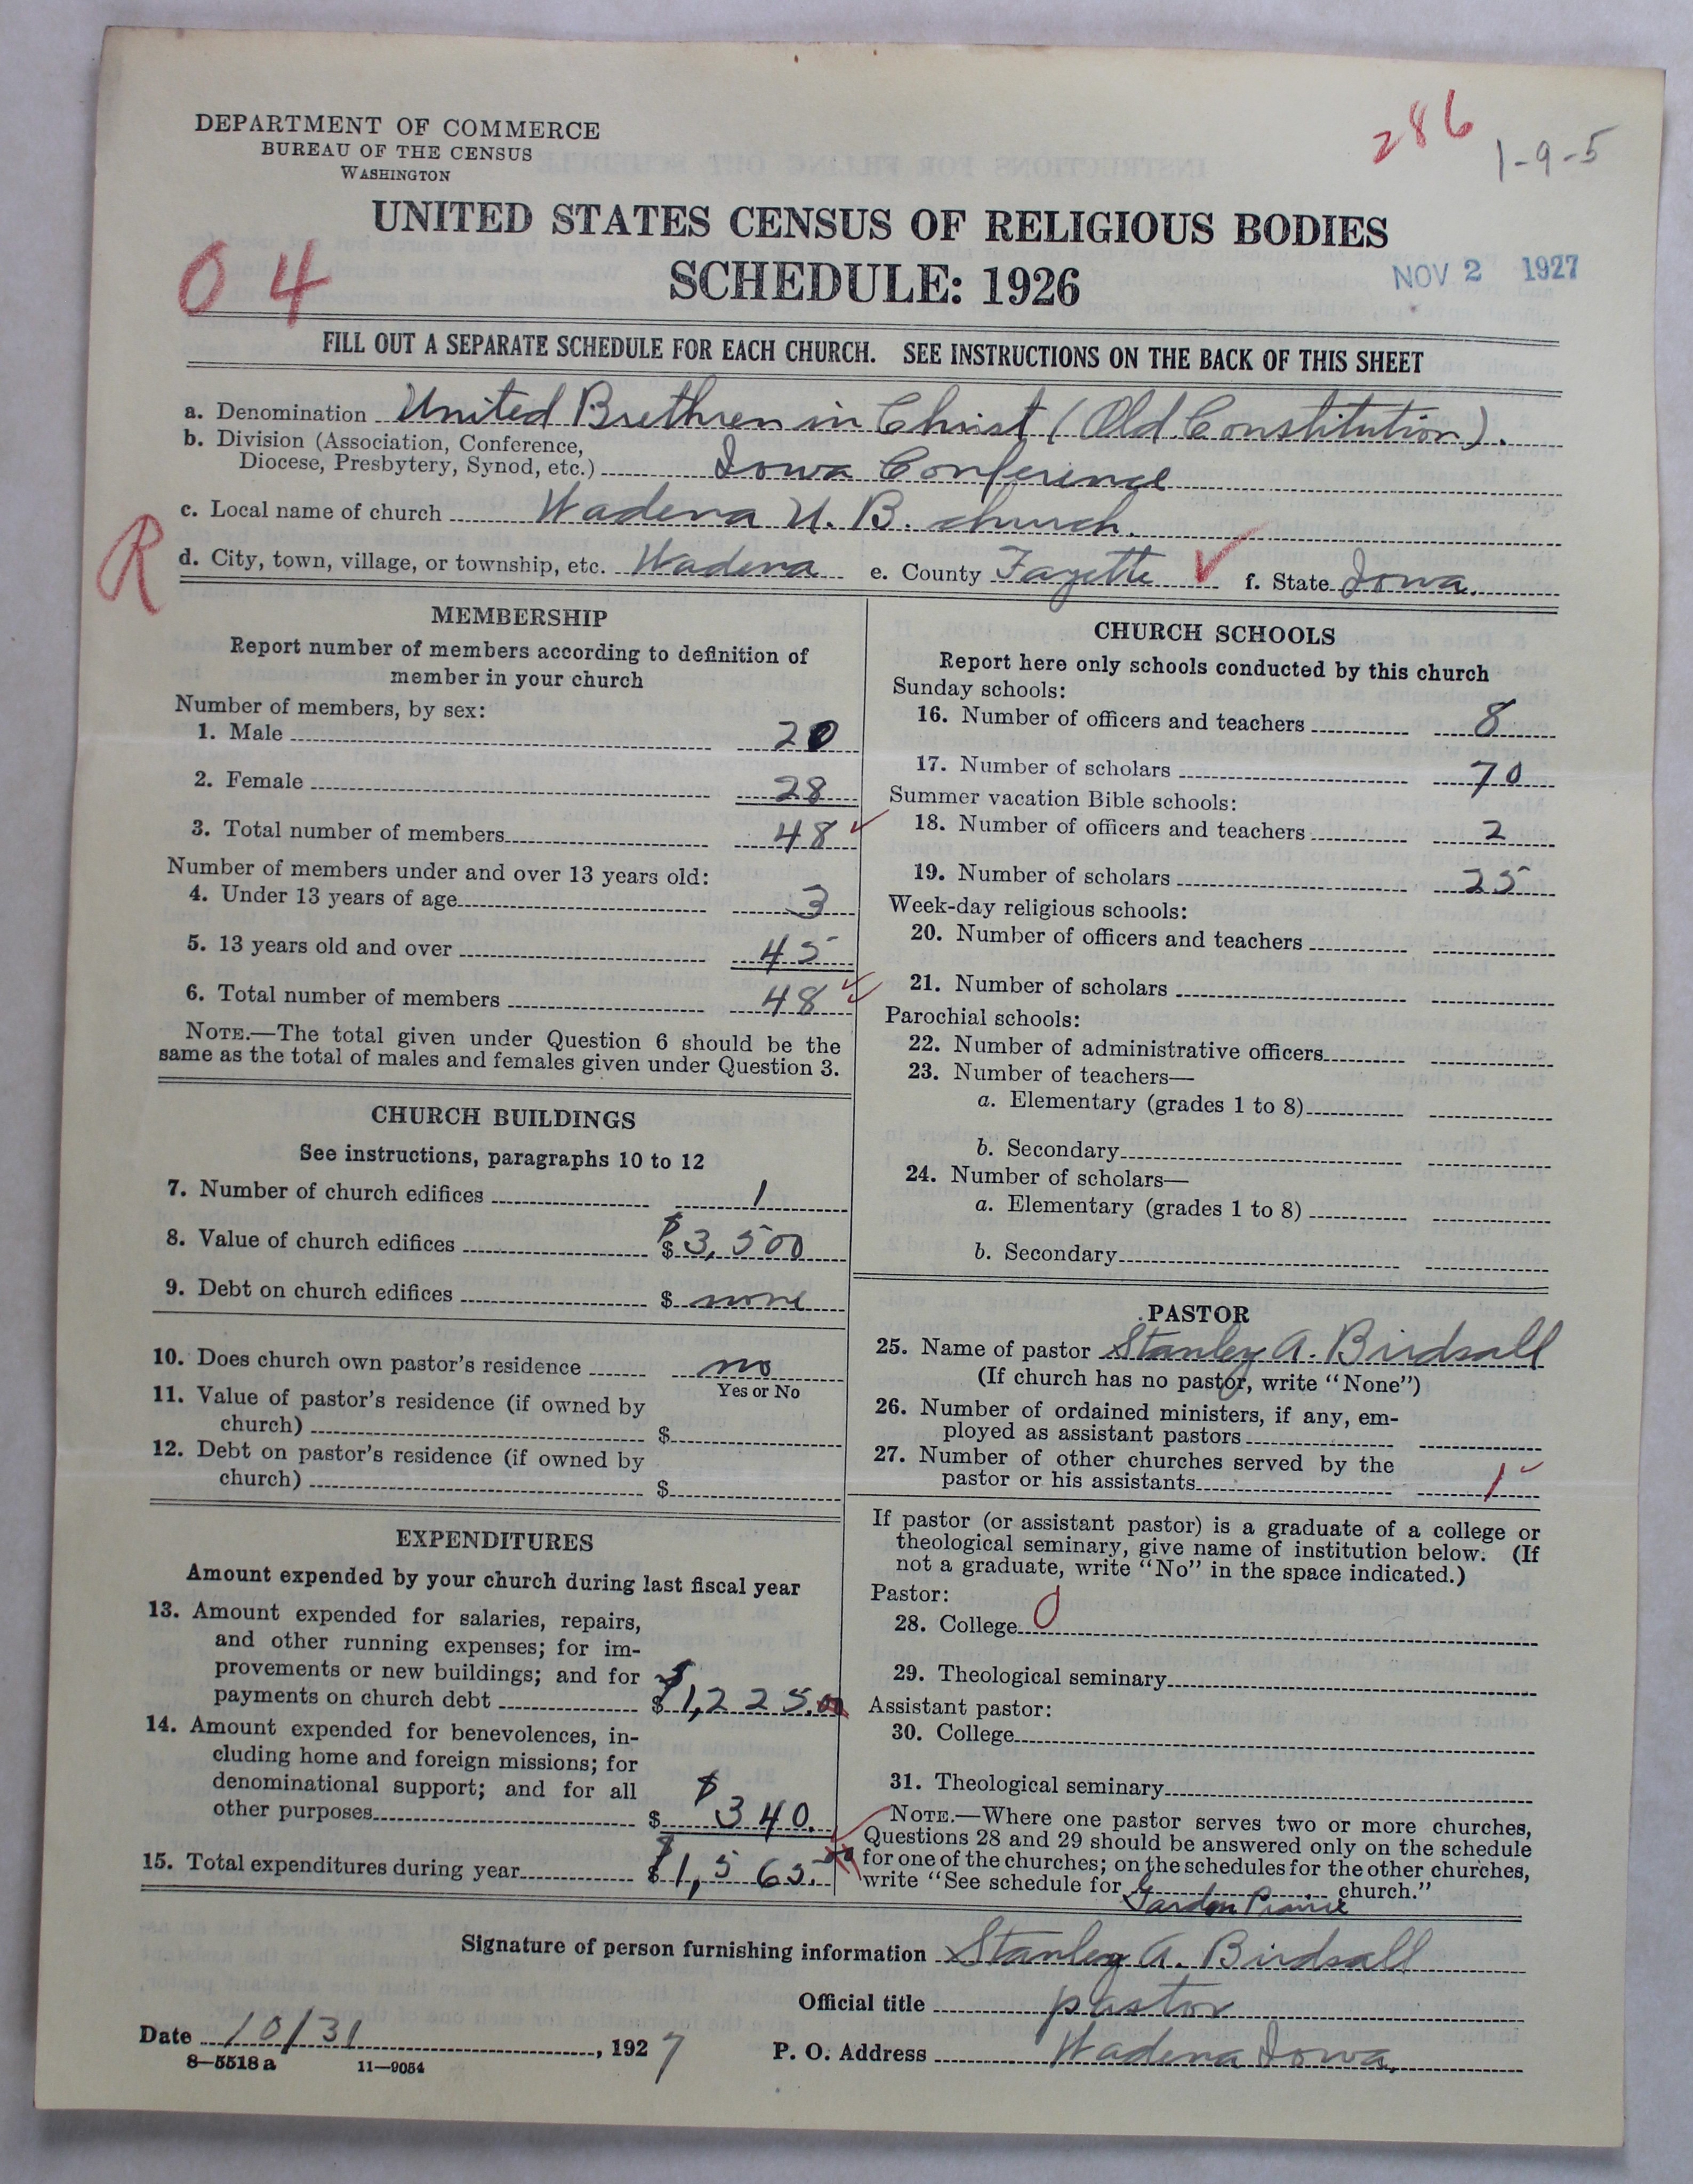 DEPARTMENT OF COMMERCE
BUREAU OF THE CENSUS
WASHINGTON
286
1-9-5
UNITED STATES CENSUS OF RELIGIOUS BODIES
SCHEDULE: 1926
04
NOV 2 1927
FILL OUT A SEPARATE SCHEDULE FOR EACH CHURCH. SEE INSTRUCTIONS ON THE BACK OF THIS SHEET
a. Denomination United Brethren in Christ (Old Constitution).
b. Division (Association, Conference,
Diocese, Presbytery, Synod, etc.) Iowa Conference
c. Local name of church Wadena U. B. church.
R
d. City, town, village, or township, etc. Wadena e. County Fayette ✓ f. State Iowa.
MEMBERSHIP
Report number of members according to definition of
member in your church
Number of members, by sex:
1. Male 20
2. Female 28
3. Total number of members 48 ✓
Number of members under and over 13 years old:
4. Under 13 years of age 3
5. 13 years old and over 45
6. Total number of members 48 ✓✓
NOTE.—The total given under Question 6 should be the
same as the total of males and females given under Question 3.
CHURCH BUILDINGS
See instructions, paragraphs 10 to 12
7. Number of church edifices 1
8. Value of church edifices $ $3,500
9. Debt on church edifices $ none
10. Does church own pastor's residence no
Yes or No
11. Value of pastor's residence (if owned by
church) $
12. Debt on pastor's residence (if owned by
church) $
EXPENDITURES
Amount expended by your church during last fiscal year
13. Amount expended for salaries, repairs,
and other running expenses; for im-
provements or new buildings; and for
payments on church debt $ $1,225.00
14. Amount expended for benevolences, in-
cluding home and foreign missions; for
denominational support; and for all
other purposes $ $340.
15. Total expenditures during year $ $1,565.
CHURCH SCHOOLS
Report here only schools conducted by this church
Sunday schools:
16. Number of officers and teachers 8
17. Number of scholars 70
Summer vacation Bible schools:
18. Number of officers and teachers 2
19. Number of scholars 25
Week-day religious schools:
20. Number of officers and teachers
21. Number of scholars
Parochial schools:
22. Number of administrative officers
23. Number of teachers—
a. Elementary (grades 1 to 8)
b. Secondary
24. Number of scholars—
a. Elementary (grades 1 to 8)
b. Secondary
PASTOR
25. Name of pastor Stanley A. Birdsall
(If church has no pastor, write "None")
26. Number of ordained ministers, if any, em-
ployed as assistant pastors
27. Number of other churches served by the
pastor or his assistants 1 ✓
If pastor (or assistant pastor) is a graduate of a college or
theological seminary, give name of institution below. (If
not a graduate, write "No" in the space indicated.)
Pastor:
28. College 0
29. Theological seminary
Assistant pastor:
30. College
31. Theological seminary
NOTE.—Where one pastor serves two or more churches,
Questions 28 and 29 should be answered only on the schedule
for one of the churches; on the schedules for the other churches,
write "See schedule for Garden Prairie church."
Signature of person furnishing information Stanley A. Birdsall
Official title pastor
Date 10/31, 1927
P. O. Address Wadena Iowa.
8—5518 a 11—9054